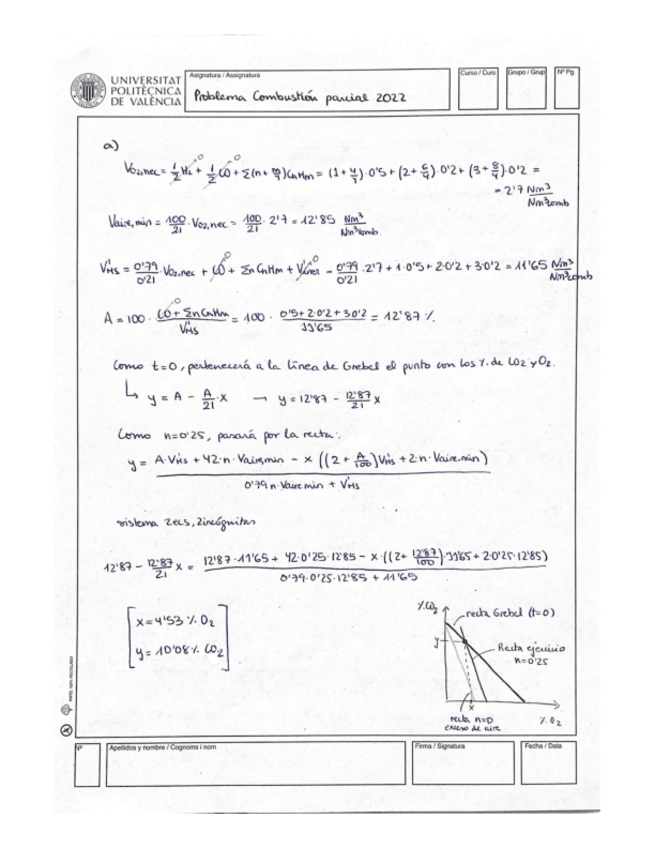 UNIVERSITAT
POLITÈCNICA
DE VALÈNCIA
Asignatura / Assignatura
Problema Combustión parcial 2022
Curso / Curs
Grupo / Grup
Nº Pg.
a)
Vo2,nec = 1/2 H2 + 1/2 CO + Σ(n + m/4)CnHm = (1+4/4)·0'5 + (2+6/4)·0'2 + (3+8/4)·0'2 =
= 2'7 Nm³/Nm³comb
Vaire,min = 100/21 · Vo2,nec = 100/21 · 2'7 = 12'85 Nm³/Nm³comb
V'Hs = 0'79/0'21 · Vo2,nec + CO + Σn CnHm + Viner = 0'79/0'21 · 2'7 + 1·0'5 + 2·0'2 + 3·0'2 = 11'65 Nm³/Nm³comb
A = 100 · (CO + Σn CnHm)/V'Hs = 100 · (0'5 + 2·0'2 + 3·0'2)/11'65 = 12'87 %.
Como t=0, pertenecerá a la línea de Grebel el punto con los % de CO2 y O2.
↳ y = A - A/21 · x → y = 12'87 - 12'87/21 x
Como n=0'25, pasará por la recta:
y = (A·V'Hs + 42·n·Vaire,min - x((2 + A/100)V'Hs + 2·n·Vaire,min))/(0'79·n·Vaire min + V'Hs)
sistema 2ecs, 2incógnitas
12'87 - 12'87/21 x = (12'87·11'65 + 42·0'25·12'85 - x·((2+ 12'87/100)·11'65 + 2·0'25·12'85))/(0'79·0'25·12'85 + 11'65)
x = 4'53 % O2
y = 10'08 % CO2
% CO2
recta Grebel (t=0)
y
Recta ejercicio
n=0'25
x
recta n=0
exceso de aire
% O2
Nº
Apellidos y nombre / Cognoms i nom
Firma / Signatura
Fecha / Data